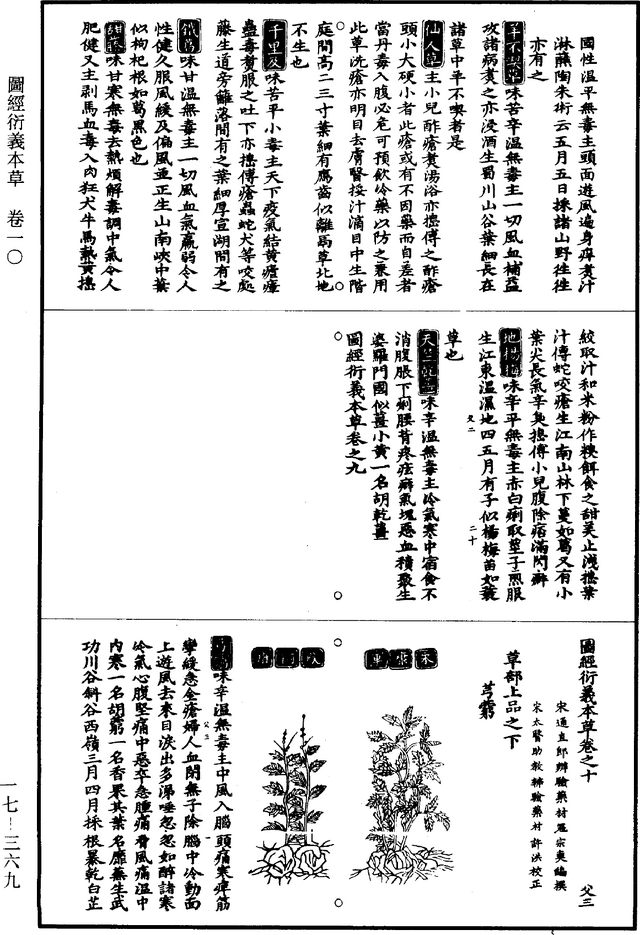 圖經衍義本草　卷一〇
國性溫平無毒主頭面遊風遍身痒煮汁
淋蘸陶朱術云五月五日採諸山野往往
亦有之
羊不喫草味苦辛溫無毒主一切風血補益
攻諸病煮之亦浸酒生蜀川山谷葉細長在
諸草中羊不喫者是
仙人草主小兒酢瘡煮湯浴亦擣傅之酢瘡
頭小大硬小者此瘡或有不因藥而自差者
當丹毒入腹必危可預飲冷藥以防之兼用
此草洗瘡亦明目去膚瞖挼汁滴目中生階
庭間高二三寸葉細有鴈齒似離鬲草北地
不生也
千里及味苦平小毒主天下疫氣結黃瘧瘴
蠱毒煮服之吐下亦擣傅瘡蟲蛇犬等咬處
藤生道旁籬落間有之葉細厚宣湖間有之
味甘溫無毒主一切風血氣羸弱令人
性健久服風緩及偏風並正生山南峽中葉
似枸杞根如葛黑色也
甜藤味甘寒無毒去熱煩解毒調中氣令人
肥健又主剥馬血毒入肉狂犬牛馬熱黃擣
絞取汁和米粉作糗餌食之甜美止洩擣葉
汁傅蛇咬瘡生江南山林下蔓如葛又有小
葉尖長氣辛臭擣傅小兒腹除痞滿閃癖
地楊梅味辛平無毒主赤白痢取莖子煎服
生江東溫濕地四五月有子似楊梅苗如蓑
草也
父二　二十
天竺乾薑味辛溫無毒主冷氣寒中宿食不
消腹脹下痢腰背疼痃癖氣塊惡血積聚生
婆羅門國似薑小黃一名胡乾薑
圖經衍義本草卷之九
圖經衍義本草卷之十　父三
宋通直郎辨驗藥材寇宗奭編撰
宋太醫助教辨驗藥材許洪校正
草部上品之下
芎藭
芎藭味辛溫無毒主中風入腦頭痛寒痺筋
攣緩急金瘡婦人血閉無子除腦中冷動面
上遊風去來目淚出多涕唾忽忽如醉諸寒
冷氣心腹堅痛中惡卒急腫痛脅風痛溫中
內寒一名胡藭一名香果其葉名蘼蕪生武
功川谷斜谷西嶺三月四月採根暴乾白芷
父三　一
一七—三六九